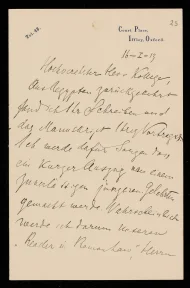 Court Place,
Iffley, Oxford.
Tel. 48.
23
Hochverehrter Herr Kollege,
Aus Aegypten zurückgekehrt
fand ich Ihr Schreiben und
das Manuscript Ihres Vortrages
Ich werde dafür Sorgen dass
ein kurzer Auszug von einem
zuverlässigen jüngeren Gelehrten
gemacht werde. Wahrscheinlich
werde ich darum unseren
Herrn